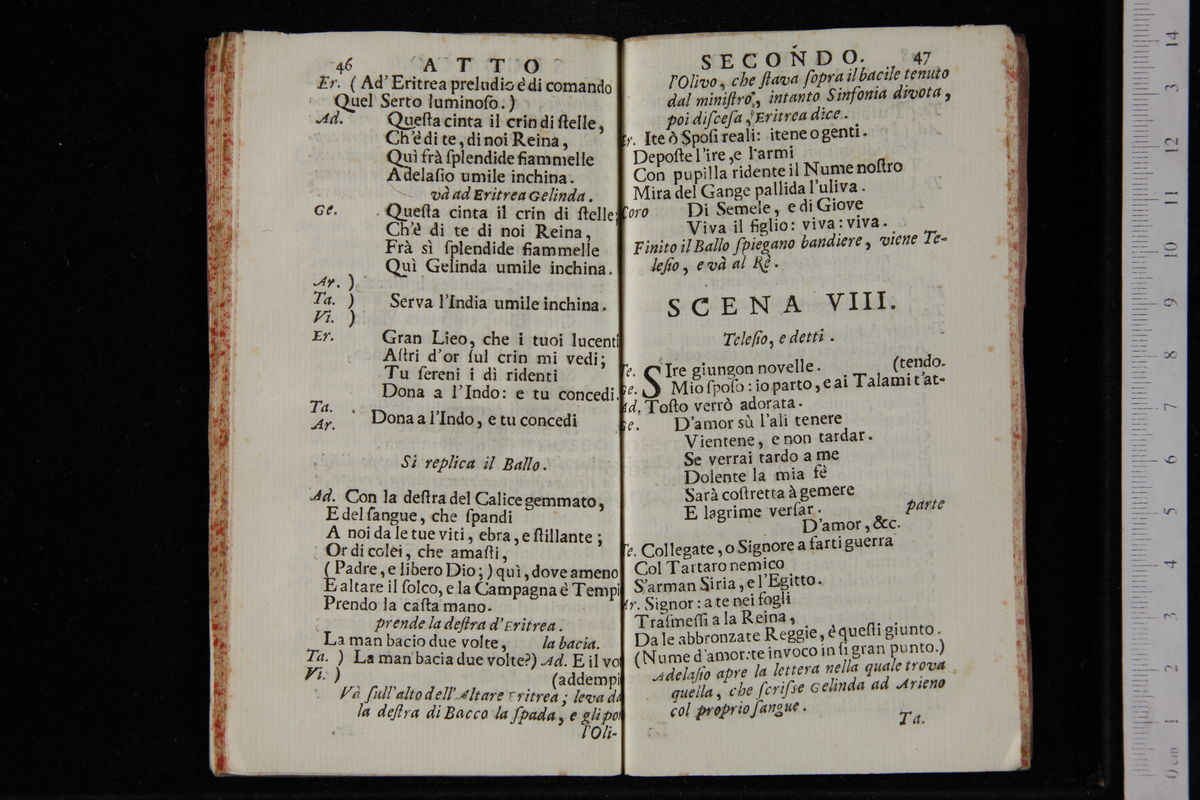 46 ATTO
Er. ( Ad' Eritrea preludio è di comando
Quel Serto luminoſo. )
Ad. Queſta cinta il crin di ſtelle,
Ch'è di te, di noi Reina,
Quì frà ſplendide fiammelle
Adelaſio umile inchina.
và ad Eritrea Gelinda.
Ge. Queſta cinta il crin di ſtelle;
Ch'è di te di noi Reina,
Frà sì ſplendide fiammelle
Quì Gelinda umile inchina.
Ar. )
Ta. ) Serva l'India umile inchina.
Vi. )
Er. Gran Lieo, che i tuoi lucenti
Aſtri d'or ſul crin mi vedi;
Tu ſereni i dì ridenti
Dona a l'Indo: e tu concedi.
Ta.
Ar. Dona a l'Indo, e tu concedi
Si replica il Ballo.
Ad. Con la deſtra del Calice gemmato,
E del ſangue, che ſpandi
A noi da le tue viti, ebra, e ſtillante;
Or di colei, che amaſti,
( Padre, e libero Dio; ) quì, dove ameno
E altare il ſolco, e la Campagna è Tempi
Prendo la caſta mano.
prende la deſtra d'Eritrea.
La man bacio due volte, la bacia.
Ta. ) La man bacia due volte?) Ad. E il vo
Vi. ) (addempi
Và ſull'alto dell'Altare Eritrea; leva da
la deſtra di Bacco la ſpada, e gli po
l'Oli-
SECONDO. 47
l'Olivo, che ſtava ſopra il bacile tenuto
dal miniſtro, intanto Sinfonia divota,
poi diſceſa, Eritrea dice.
Er. Ite ò Spoſi reali: itene o genti.
Depoſte l'ire, e l'armi
Con pupilla ridente il Nume noſtro
Mira del Gange pallida l'uliva.
Coro Di Semele, e di Giove
Viva il figlio: viva: viva.
Finito il Ballo ſpiegano bandiere, viene Te-
leſio, e và al Rè.
SCENA VIII.
Teleſio, e detti.
Te. SIre giungon novelle. (tendo.
Ge. Mio ſpoſo: io parto, e ai Talami t'at-
Ad. Toſto verrò adorata.
Ge. D'amor sù l'ali tenere
Vientene, e non tardar.
Se verrai tardo a me
Dolente la mia fè
Sarà coſtretta à gemere
E lagrime verſar. parte
D'amor, &c.
Te. Collegate, o Signore a farti guerra
Col Tartaro nemico
S'arman Siria, e l'Egitto.
Ar. Signor: a te nei fogli
Traſmeſſi a la Reina,
Da le abbronzate Reggie, è queſti giunto.
(Nume d'amor: te invoco in sì gran punto.)
Adelaſio apre la lettera nella quale trova
quella, che ſcriſse Gelinda ad Arieno
col proprio ſangue.
Ta.